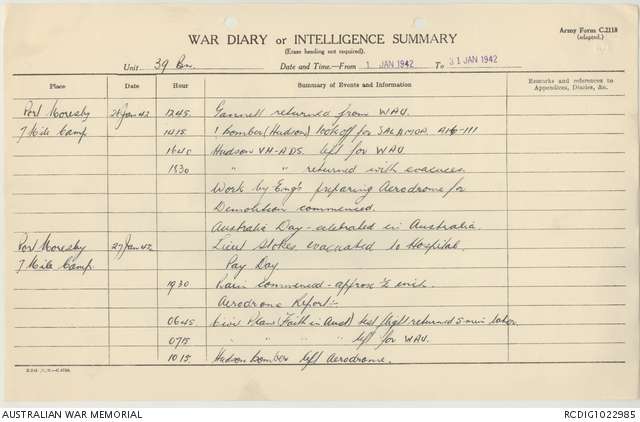 Army Form C.2118
(adapted.)
WAR DIARY or INTELLIGENCE SUMMARY
(Erase heading not required).
Unit 39 Bn. Date and Time—From 1 JAN 1942 To 31 JAN 1942
Place Date Hour Summary of Events and Information Remarks and references to Appendices, Diaries, &c.
Port Moresby 26 Jan 42 1245 Gannett returned from WAU.
7 Mile Camp 1015 1 bomber (Hudson) took off for SALAMOA A16-111
1645 Hudson VH-ADS left for WAU
1830 " " returned with evacuees.
Work by Eng's preparing Aerodrome for
Demolition commenced.
Australia Day - celebrated in Australia.
Port Moresby 27 Jan 42 Lieut Stokes evacuated to Hospital.
7 Mile Camp Pay Day
1930 Rain commenced - approx ½ inch.
Aerodrome Report:-
0645 Civil Plane (Faith in Aust) test flight returned 5 min later
0715 " " " " left for WAU.
1015 Hudson bomber left Aerodrome.
AUSTRALIAN WAR MEMORIAL
RCDIG1022985